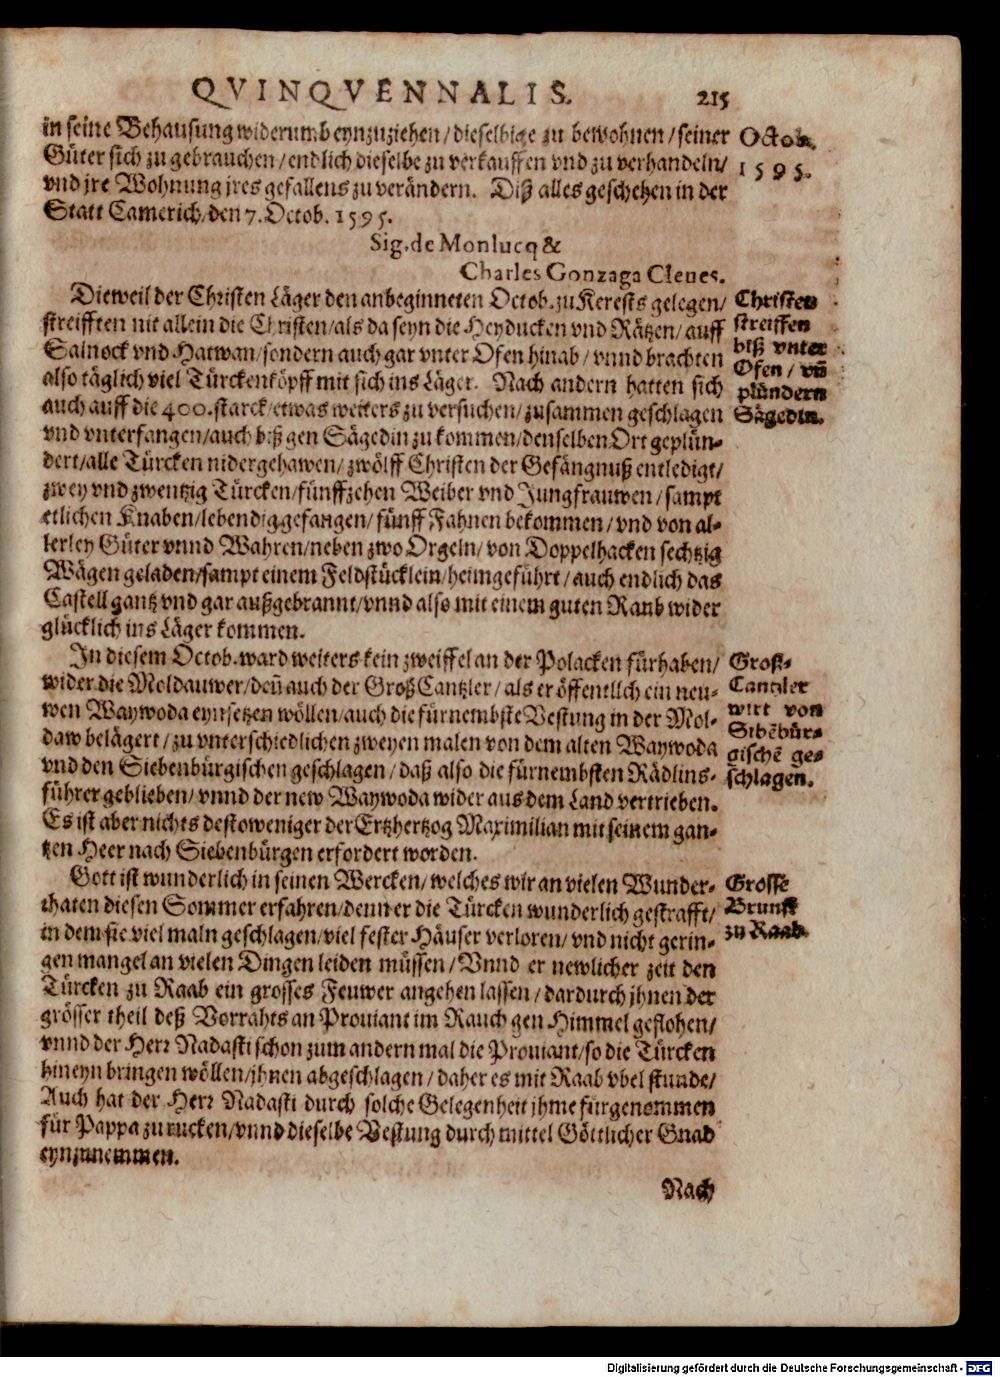 QVINQVENNALIS. 215
in seine Behausung widerumb eynzuziehen / dieselbige zu bewohnen / seiner
Güter sich zu gebrauchen / endlich dieselbe zu verkauffen vnd zu verhandeln /
vnd jre Wohnung jres gefallens zu verändern. Diß alles geschehen in der
Statt Camerich / den 7. Octob. 1595.
Octob.
1595.
Sig. de Monlucq &
Charles Gonzaga Cleues.
Dieweil der Christen Läger den anbeginneten Octob. zu Kerests gelegen /
streifften nit allein die Christen / als da seyn die Heyducken vnd Rätzen / auff
Salnock vnd Hatwan / sondern auch gar vnter Ofen hinab / vnnd brachten
also täglich viel Türckenköpff mit sich ins Läger. Nach andern hatten sich
auch auff die 400. starck / etwas weiters zu versuchen / zusammen geschlagen
vnd vnterfangen / auch biß gen Sägedin zu kommen / denselben Ort geplün-
dert / alle Türcken nidergehawen / zwölff Christen der Gefängnuß entledigt /
zwey vnd zwentzig Türcken / fünffzehen Weiber vnd Jungfrauwen / sampt
etlichen Knaben / lebendig gefangen / fünff Fahnen bekommen / vnd von al-
lerley Güter vnnd Wahren / neben zwo Orgeln / von Doppelhacken sechtzig
Wägen geladen / sampt einem Feldstücklein / heimgeführt / auch endlich das
Castell gantz vnd gar außgebrannt / vnnd also mit einem guten Raub wider
glücklich ins Läger kommen.
Christen
streiffen
biß vnter
Ofen / vñ
plündern
Sägedin.
In diesem Octob. ward weiters kein zweiffel an der Polacken fürhaben /
wider die Moldauwer / deñ auch der Groß Cantzler / als er öffentlich ein neu-
wen Waywoda eynsetzen wöllen / auch die fürnembste Vestung in der Mol-
daw belägert / zu vnterschiedlichen zweyen malen von dem alten Waywoda
vnd den Siebenbürgischen geschlagen / daß also die fürnembsten Rädlins-
führer geblieben / vnnd der new Waywoda wider aus dem Land vertrieben.
Es ist aber nichts destoweniger der Ertzhertzog Maximilian mit seinem gan-
tzen Heer nach Siebenbürgen erfordert worden.
Groß-
Cantzler
wirt von
Sibēbür-
gischē ge-
schlagen.
Gott ist wunderlich in seinen Wercken / welches wir an vielen Wunder-
thaten diesen Sommer erfahren / denn er die Türcken wunderlich gestrafft /
in dem sie viel maln geschlagen / viel fester Häuser verloren / vnd nicht gerin-
gen mangel an vielen Dingen leiden müssen / Vnnd er newlicher zeit den
Türcken zu Raab ein grosses Feuwer angehen lassen / dardurch jhnen der
grösser theil deß Vorrahts an Prouiant im Rauch gen Himmel geflohen /
vnnd der Herr Nadasti schon zum andern mal die Prouiant / so die Türcken
hineyn bringen wöllen / jhnen abgeschlagen / daher es mit Raab vbel stunde /
Auch hat der Herr Nadasti durch solche Gelegenheit jhme fürgenommen
für Pappa zu rucken / vnnd dieselbe Vestung durch mittel Göttlicher Gnad
eynzunemmen.
Grosse
Brunst
zu Raab.
Nach
Digitalisierung gefördert durch die Deutsche Forschungsgemeinschaft - DFG